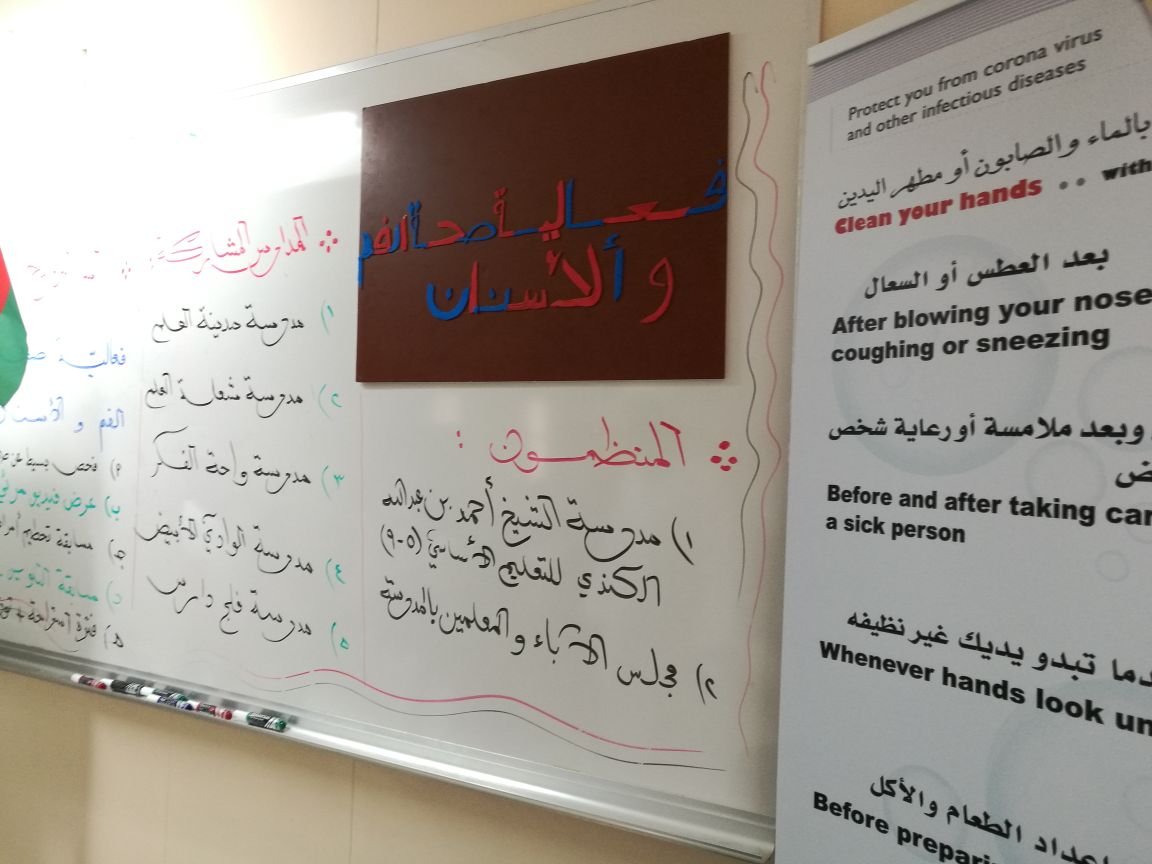 فعالية صحة الفم
و الأسنان
المنظمون :
١) مدرسة الشيخ أحمد بن عبدالله
الكندي للتعليم الأساسي (٥-٩)
٢) مجلس الآباء و المعلمين بالمدرسة
المدارس المشاركة :
١) مدرسة مدينة العلم
٢) مدرسة شعلة العلم
٣) مدرسة واحة الفكر
٤) مدرسة الوادي الأبيض
٥) مدرسة فلج دارس
فعالية
الفم و الأسنان
أ) فحص بسيط
ب) عرض فيديو مرئي
ج) مسابقة
د) مسابقة
ه) فترة استراحة +
Protect you from corona virus
and other infectious diseases
بالماء والصابون أو مطهر اليدين
Clean your hands •• with
بعد العطس أو السعال
After blowing your nose
coughing or sneezing
وبعد ملامسة أو رعاية شخص
Before and after taking
a sick person
تبدو يديك غير نظيفه
Whenever hands look
الطعام والأكل
Before